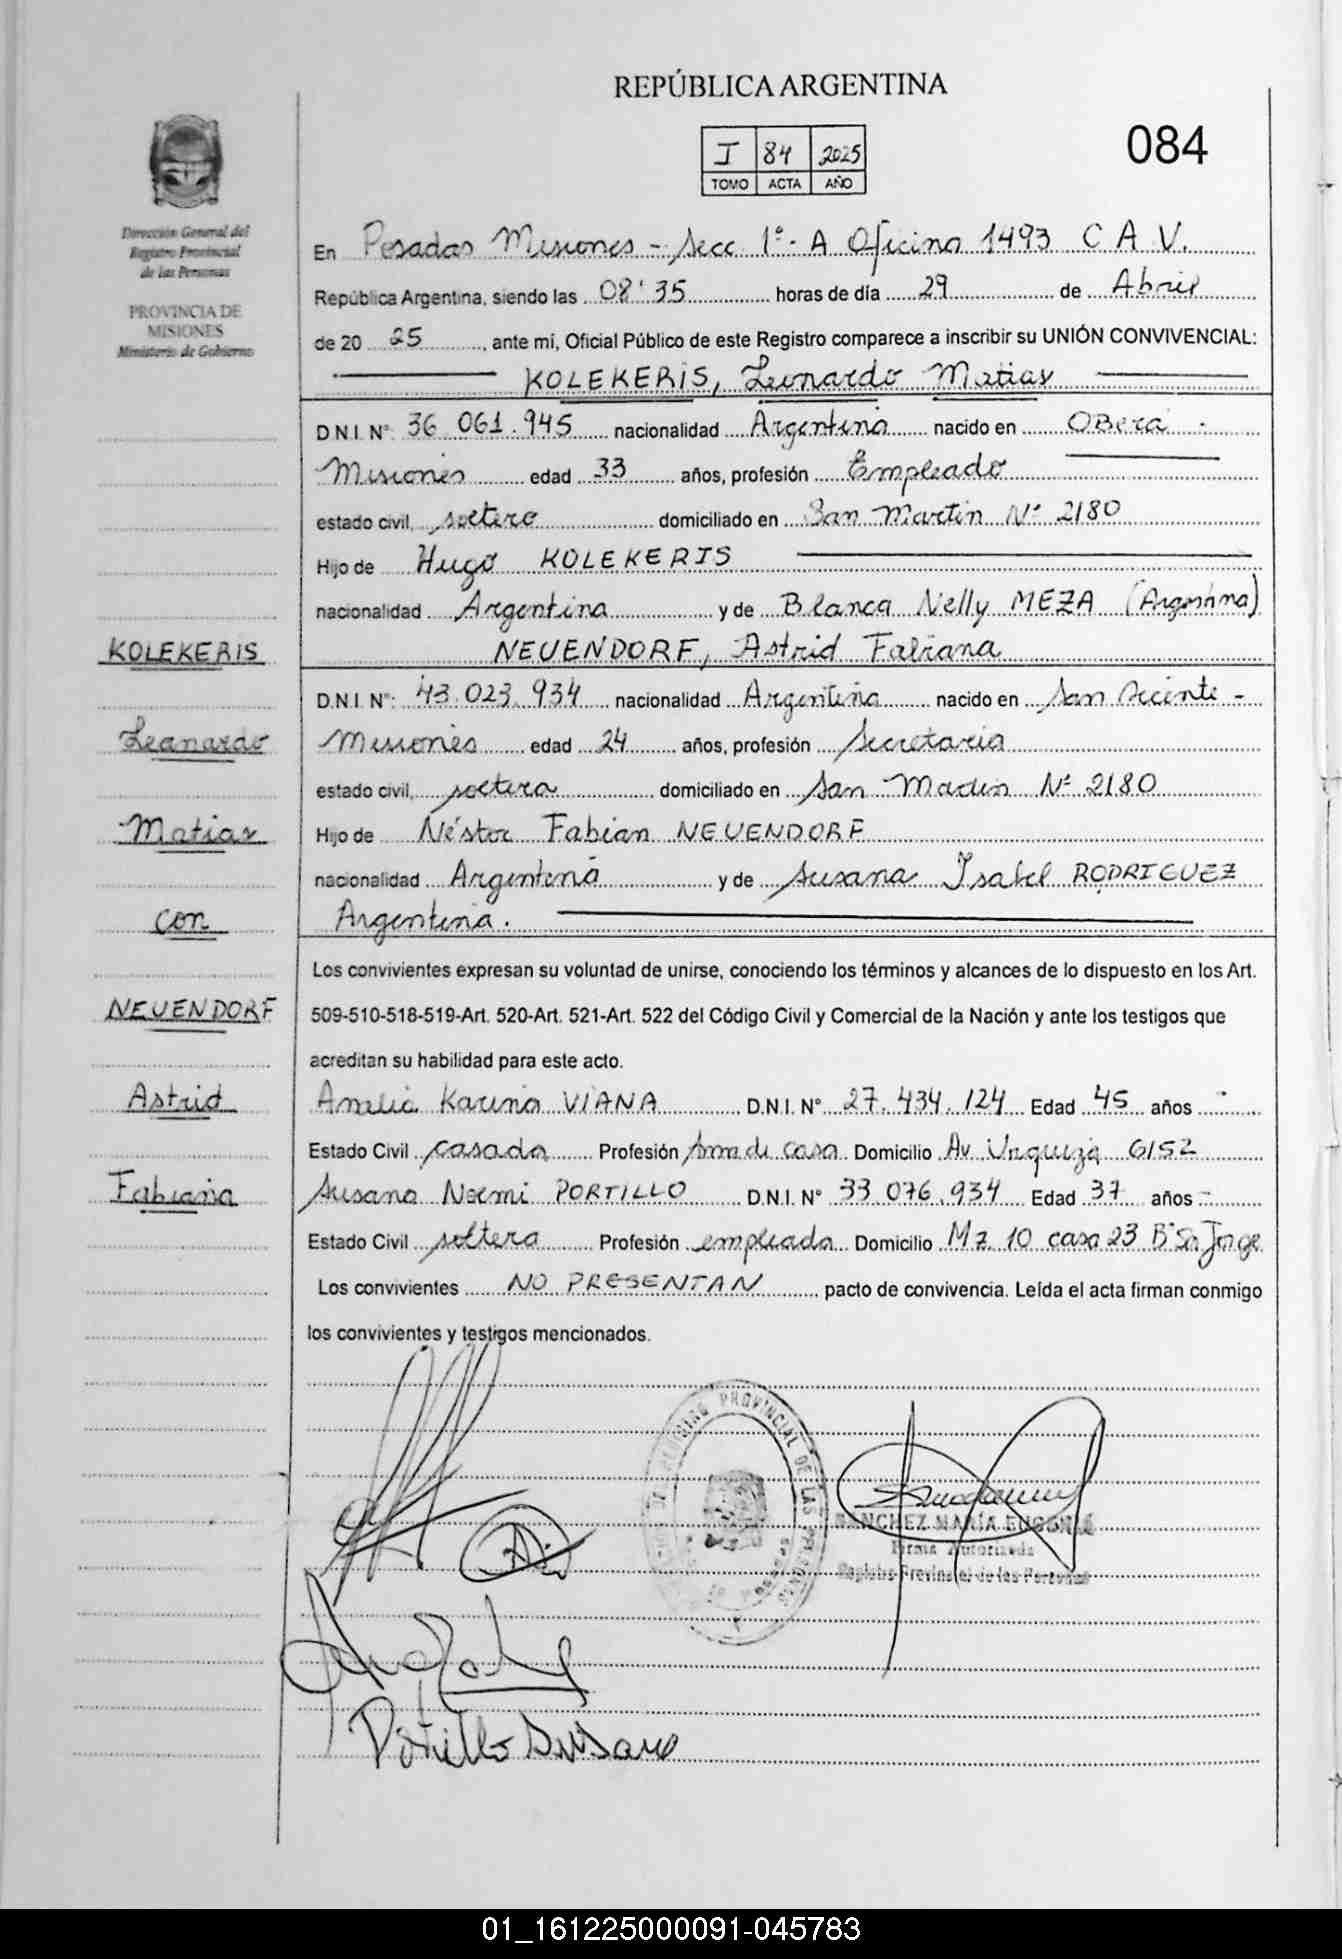 REPÚBLICA ARGENTINA
I 84 2025
TOMO ACTA AÑO
084
Dirección General del
Registro Provincial
de las Personas
PROVINCIA DE
MISIONES
Ministerio de Gobierno
En Posadas Misiones - Secc 1º - A Oficina 1493 C A V.
República Argentina, siendo las 08:35 horas de día 29 de Abril
de 20 25, ante mi, Oficial Público de este Registro comparece a inscribir su UNIÓN CONVIVENCIAL:
KOLEKERIS, Leonardo Matias
D.N.I. Nº: 36.061.945 nacionalidad Argentina nacido en OBera -
Misiones edad 33 años, profesión Empleado
estado civil, soltero domiciliado en San Martin Nº 2180
Hijo de Hugo KOLEKERIS
nacionalidad Argentina y de Blanca Nelly MEZA (Argentina)
NEUENDORF, Astrid Fabiana
D.N.I. Nº: 43.023.934 nacionalidad Argentina nacido en San Vicente -
Misiones edad 24 años, profesión Secretaria
estado civil, soltera domiciliado en San Martin Nº 2180
Hijo de Néstor Fabian NEUENDORF
nacionalidad Argentina y de Susana Isabel RODRIGUEZ
Argentina.
KOLEKERIS
Leonardo
Matias
con
NEUENDORF
Astrid
Fabiana
Los convivientes expresan su voluntad de unirse, conociendo los términos y alcances de lo dispuesto en los Art.
509-510-518-519-Art. 520-Art. 521-Art. 522 del Código Civil y Comercial de la Nación y ante los testigos que
acreditan su habilidad para este acto.
Amelia Karina VIANA D.N.I. Nº 27.434.124 Edad 45 años -
Estado Civil casada Profesión Ama de casa Domicilio Av Urquiza 6152
Susana Noemi PORTILLO D.N.I. Nº 33.076.934 Edad 37 años -
Estado Civil soltera Profesión empleada Domicilio Mz 10 casa 23 Bº Sn Jorge
Los convivientes NO PRESENTAN pacto de convivencia. Leída el acta firman conmigo
los convivientes y testigos mencionados.
REGISTRO PROVINCIAL DE LAS PERSONAS
SANCHEZ MARÍA EUGENIA
Firma Autorizada
Registro Provincial de las Personas
Portillo Susana
01_161225000091-045783